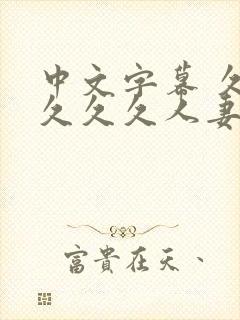 中文字幕 久
久久久人妻
富貴在天、